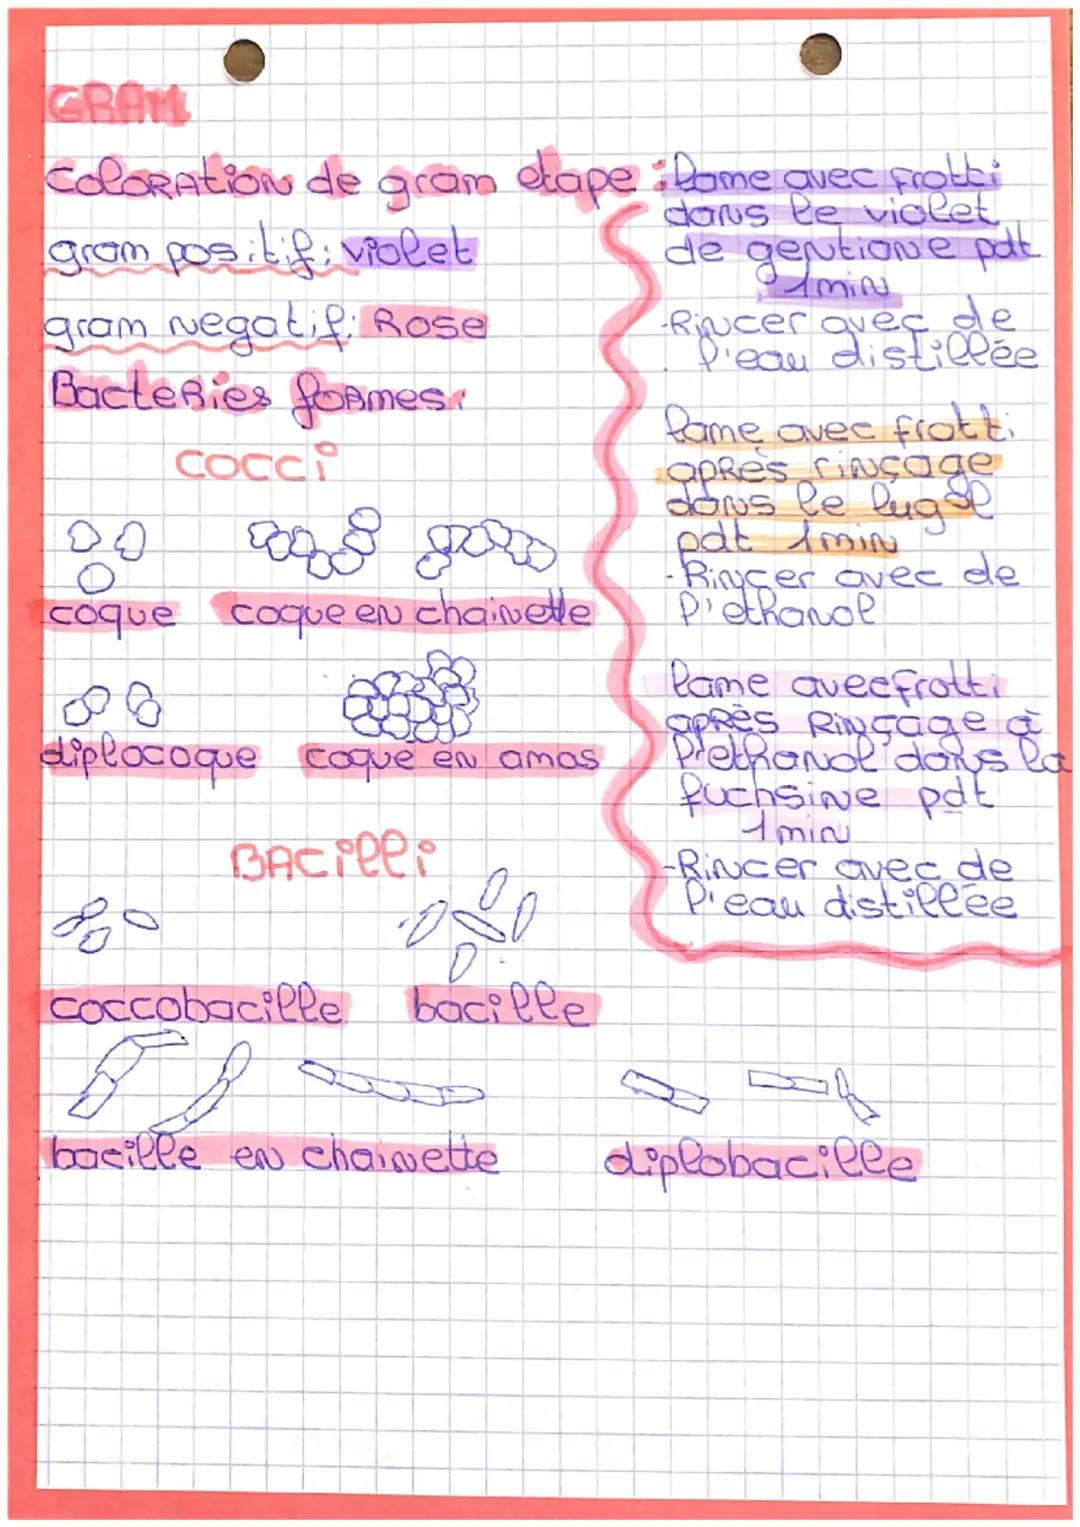 GRAM
ColoRAtion de gram etape :
gram positif: violet
gram negatif: Rose
BacteRies foRmes:
COCCi
coque coque en chainette
diplocoque coque en amas
BACilli
coccobacille bacille
bacille en chainette diplobacille
lame avec frotti
dans le violet
de gentiane pdt
1min
-Rincer avec de
l'eau distillée
lame avec frotti
apRès rinçage
dans le lugol
pdt 1min
-Rincer avec de
l'ethanol
lame avec frotti
apRès Rinçage à
l'ethanol dans la
fuchsine pdt
1min
-Rincer avec de
l'eau distillée